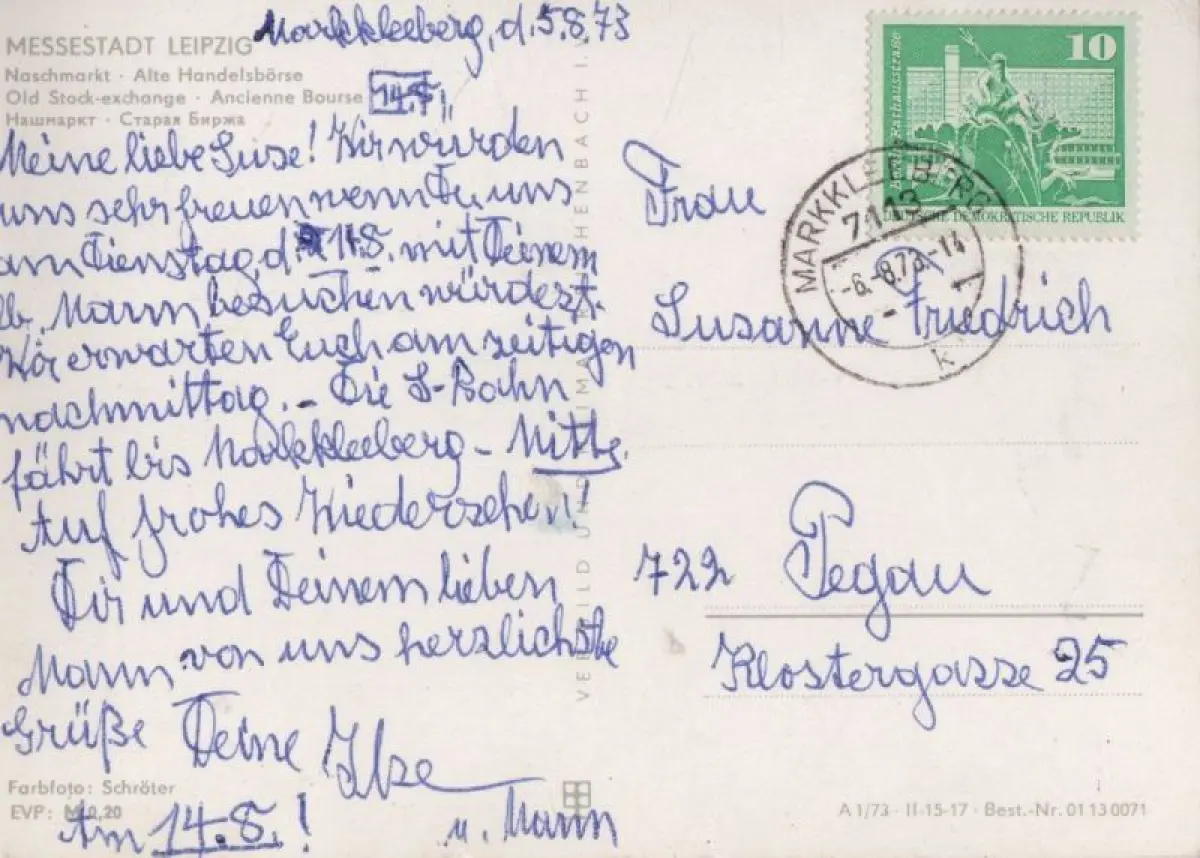 Markkleeberg, d. 5.8.73
MESSESTADT LEIPZIG
Naschmarkt · Alte Handelsbörse
Old Stock-exchange · Ancienne Bourse
Нашмаркт · Старая Биржа
14.8.
Meine liebe Suse! Wir würden
uns sehr freuen wenn Du uns
am Dienstag, d. 14.8. mit Deinem
lb. Mann besuchen würdest.
Wir erwarten Euch am zeitigen
nachmittag. – Die S-Bahn
fährt bis Markkleeberg – Mitte.
Auf frohes Wiedersehen!
Dir und Deinem lieben
Mann von uns herzlichste
Grüße Deine Ilse
u. Mann
Am 14.8.!
Farbfoto: Schröter
EVP: M 0,20
VERLAG BILD UND HEIMAT REICHENBACH I. V.
10
Rathausstraße
DEUTSCHE DEMOKRATISCHE REPUBLIK
MARKKLEEBERG
7113
-6.-8.73.-14
k
Frau
Susanne Friedrich
722 Pegau
Klostergasse 25
A 1/73 · II-15-17 · Best.-Nr. 01 13 0071